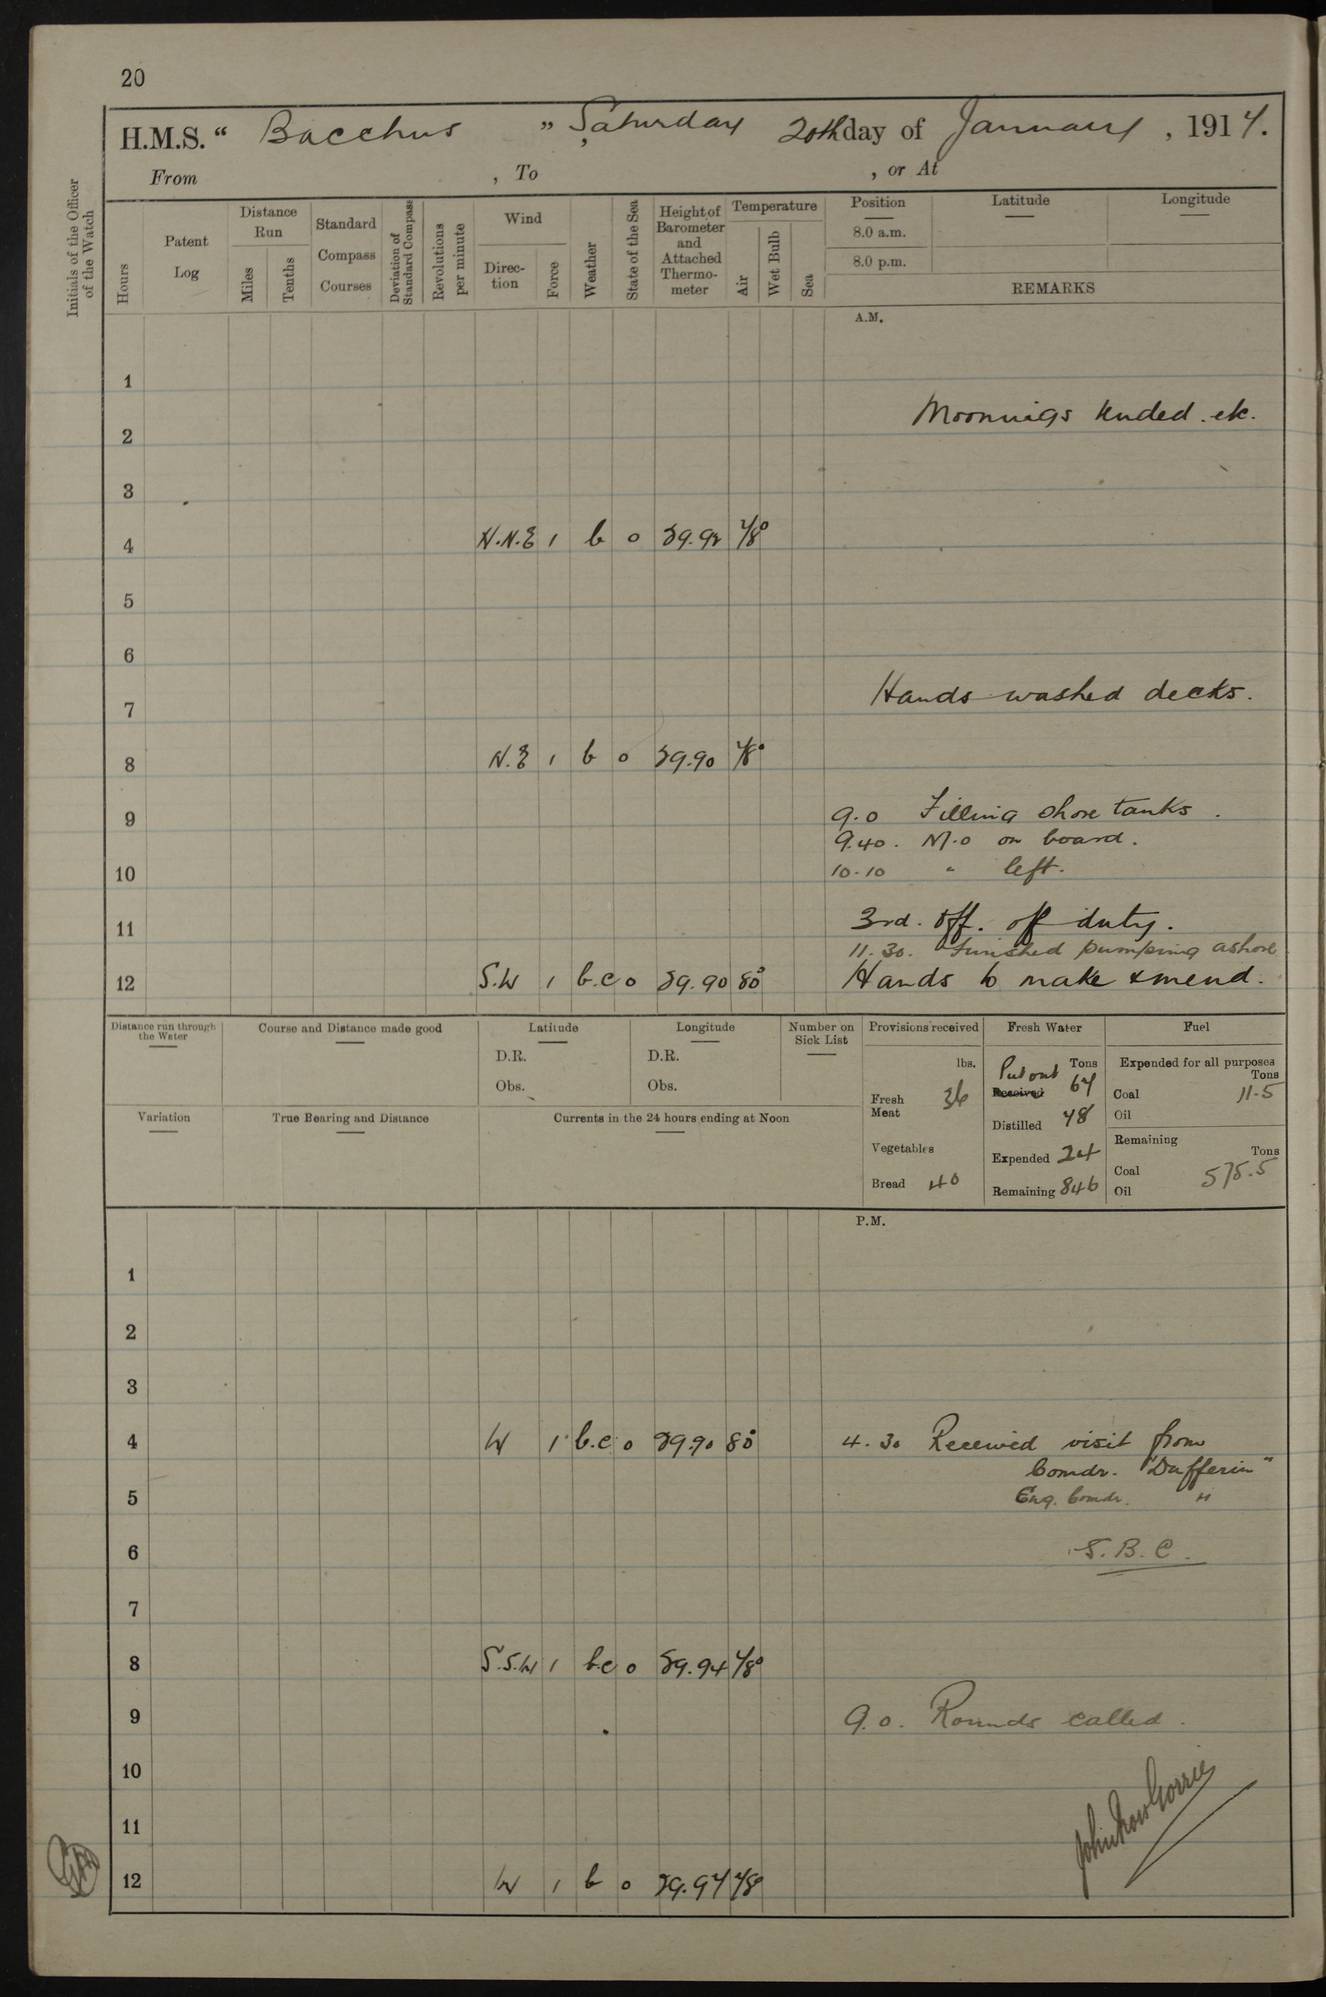 20
H.M.S. “ Bacchus ”, Saturday 20th day of January , 1917.
From , To , or At
Initials of the Officer of the Watch
Hours
Patent Log
Distance Run
Miles
Tenths
Standard Compass Courses
Deviation of Standard Compass
Revolutions per minute
Wind
Direction
Force
Weather
State of the Sea
Height of Barometer and Attached Thermometer
Temperature
Air
Wet Bulb
Sea
Position
8.0 a.m.
8.0 p.m.
Latitude
Longitude
REMARKS
A.M.
1
Moorings tended. etc.
2
3
4 N.N.E 1 b 0 29.92 78°
5
6
Hands washed decks.
7
8 N.E 1 b 0 29.90 78°
9 9.0 Filling shore tanks.
9.40. M.O on board.
10 10.10 " left.
11 3rd. Off. off duty.
11.30. Finished pumping ashore
12 S.W 1 b.c 0 29.90 80° Hands to make & mend.
Distance run through the Water
Course and Distance made good
Latitude
D.R.
Obs.
Longitude
D.R.
Obs.
Number on Sick List
Provisions received
lbs.
Fresh Meat 36
Vegetables
Bread 40
Fresh Water
Tons
Put out
Received 67
Distilled 78
Expended 24
Remaining 846
Fuel
Expended for all purposes
Tons
Coal 11.5
Oil
Remaining
Tons
Coal 575.5
Oil
Variation
True Bearing and Distance
Currents in the 24 hours ending at Noon
P.M.
1
2
3
4 W 1 b.c 0 29.90 80° 4.30 Received visit from
Comdr. "Dufferin"
5 Eng. Comdr. "
6 S.B.C.
7
8 S.S.W 1 b.c 0 29.94 78°
9 9.0. Rounds called.
10
11
12 W 1 b 0 29.97 78°